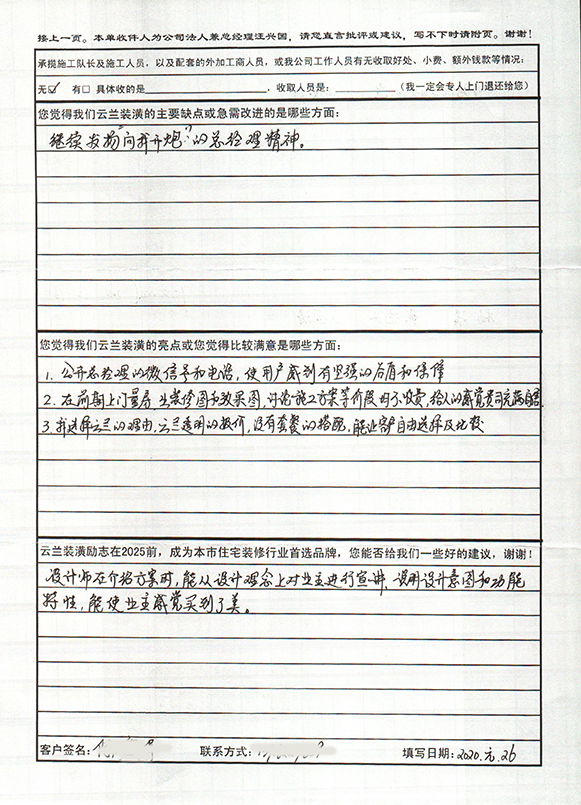 接上一页。本单收件人为公司法人兼总经理汪兴国，请您直言批评或建议，写不下时请附页。谢谢！
承揽施工队长及施工人员，以及配套的外加工商人员，或我公司工作人员有无收取好处、小费、额外钱款等情况：
无☑ 有□ 具体收的是 ，收取人员是： （我一定会专人上门退还给您）
您觉得我们云兰装潢的主要缺点或急需改进的是哪些方面：
继续发扬“向我开炮”的总经理精神。
您觉得我们云兰装潢的亮点或您觉得比较满意是哪些方面：
1. 公开总经理的微信号和电话，使用户感到有坚强的后盾和保障
2. 在前期上门量房，出装修图和效果图，讨论施工方案等阶段均不收费，给人的感觉贵司充满自信
3. 我选择云兰的理由，云兰透明的报价，没有套餐的搭配，能业主自由选择及比较
云兰装潢励志在2025前，成为本市住宅装修行业首选品牌，您能否给我们一些好的建议，谢谢！
设计师在介绍方案时，能从设计理念上对业主进行宣讲，说明设计意图和功能
特性，能使业主感觉买到了美。
客户签名： 联系方式： 填写日期：2020.元.26